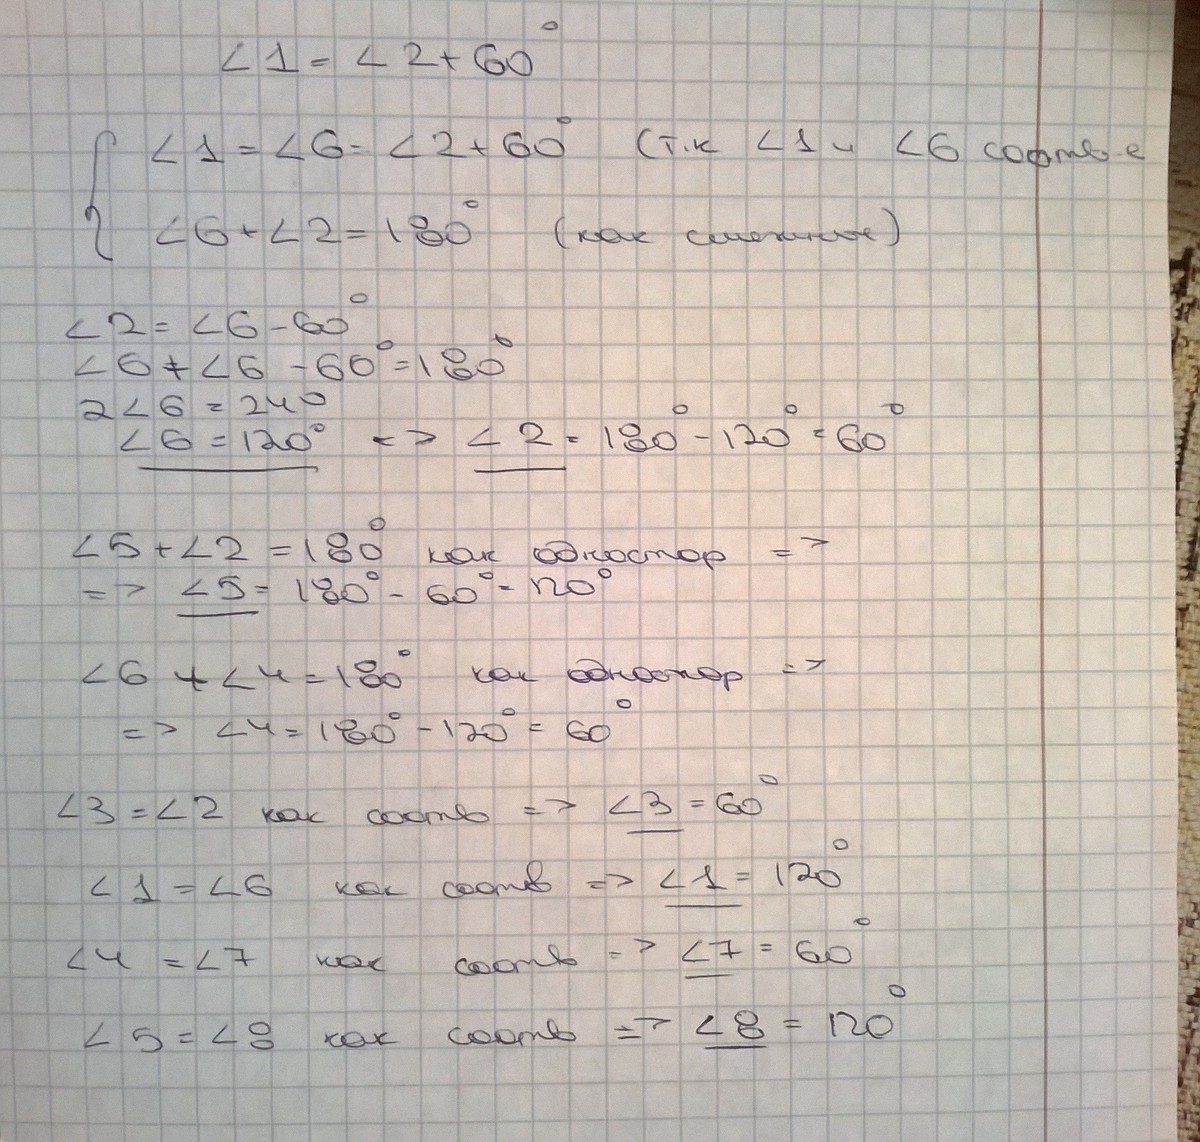 ∠1 = ∠2 + 60°
{ ∠1 = ∠6 = ∠2 + 60° (т.к ∠1 и ∠6 соотв-е
∠6 + ∠2 = 180° (как смежные)
∠2 = ∠6 - 60°
∠6 + ∠6 - 60° = 180°
2∠6 = 240
∠6 = 120° => ∠2 = 180° - 120° = 60°
∠5 + ∠2 = 180° как одностор =>
=> ∠5 = 180° - 60° = 120°
∠6 + ∠4 = 180° как одностор =>
=> ∠4 = 180° - 120° = 60°
∠3 = ∠2 как соотв => ∠3 = 60°
∠1 = ∠6 как соотв => ∠1 = 120°
∠4 = ∠7 как соотв => ∠7 = 60°
∠5 = ∠8 как соотв => ∠8 = 120°